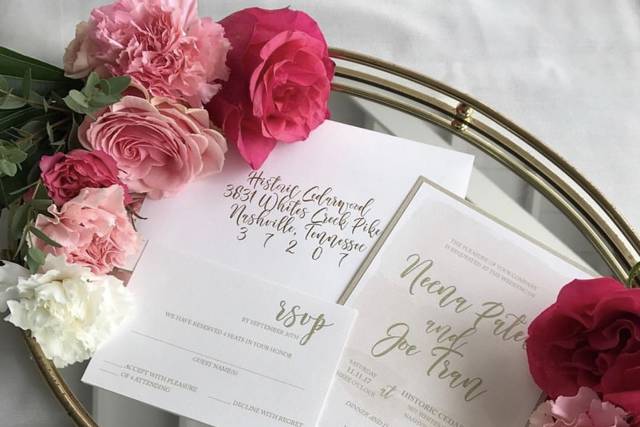 Historic Cedarwood
3831 Whites Creek Pike
Nashville, Tennessee
3 7 2 0 7
rsvp
BY SEPTEMBER 30TH
WE HAVE RESERVED 4 SEATS IN YOUR HONOR
GUEST NAME(S)
ACCEPT WITH PLEASURE
OF 4 ATTENDING
DECLINE WITH REGRET
THE PLEASURE OF YOUR COMPANY
IS REQUESTED AT THE WEDDING OF
Neena Patel
and
Joe Tran
SATURDAY
11.11.17
O'CLOCK
at
HISTORIC CEDAR
WHITES
DINNER AND